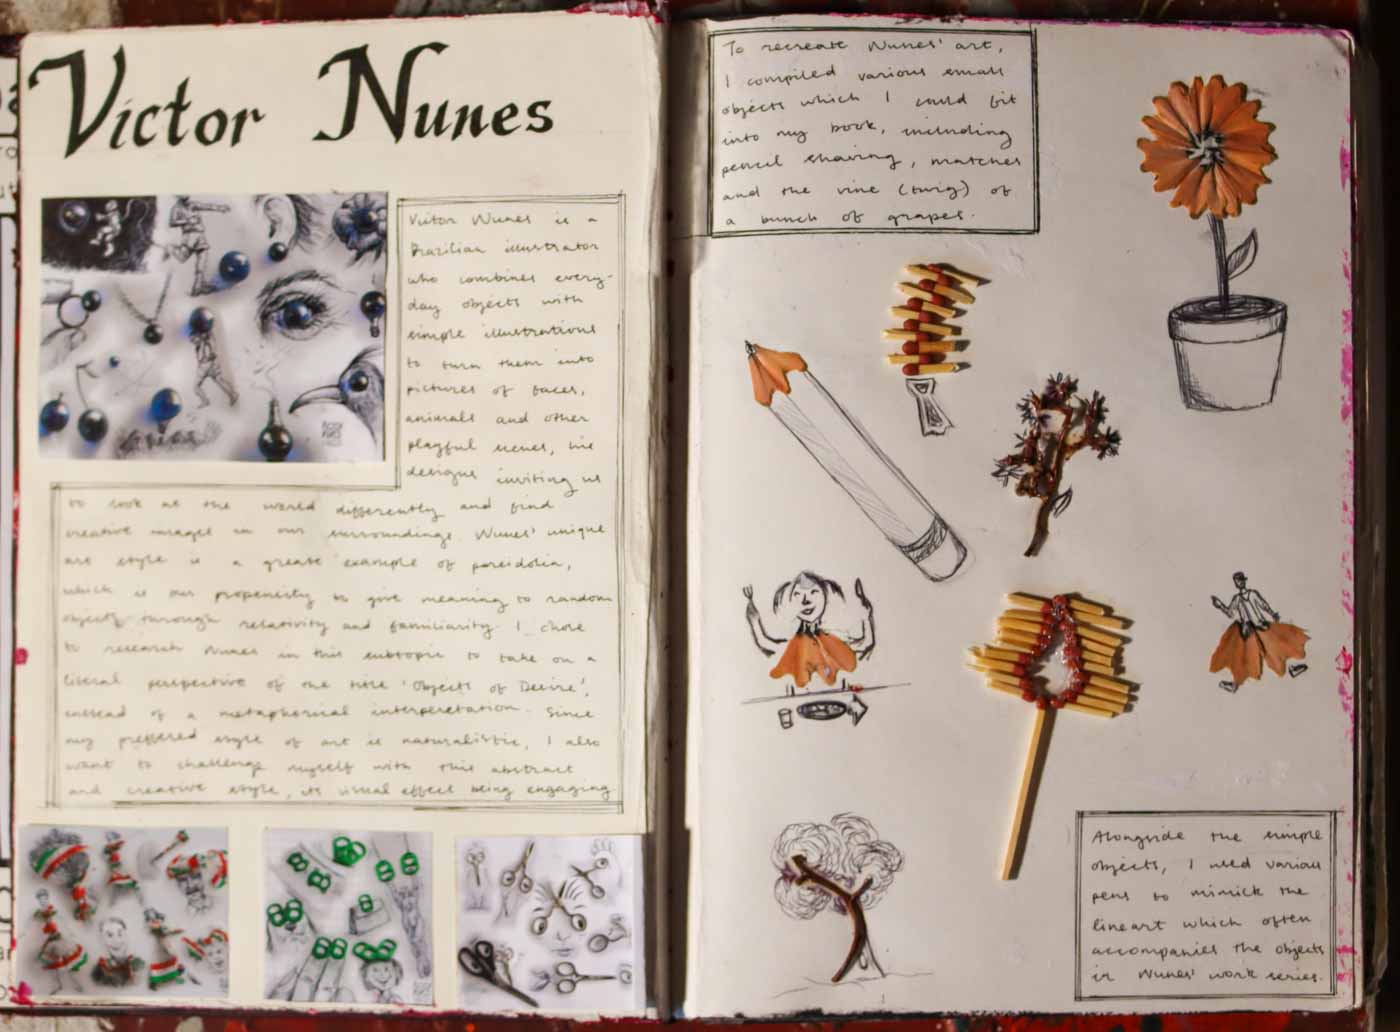 Victor Nunes
Victor Nunes is a
Brazilian illustrator
who combines every-
day objects with
simple illustrations
to turn them into
pictures of faces,
animals and other
playful scenes, his
designs inviting us
to look at the world differently and find
creative images in our surroundings. Nunes' unique
art style is a great example of pareidolia,
which is our propensity to give meaning to random
objects through relativity and familiarity. I chose
to research Nunes in this subtopic to take on a
literal perspective of the title 'Objects of Desire',
instead of a metaphorical interpretation. Since
my preffered style of art is naturalistic, I also
want to challenge myself with this abstract
and creative style, its visual effect being engaging.
To recreate Nunes' art,
I compiled various small
objects which I could fit
into my book, including
pencil shaving, matches
and the vine (twig) of
a bunch of grapes.
Alongside the simple
objects, I used various
pens to mimick the
lineart which often
accompanies the objects
in Nunes' work series.